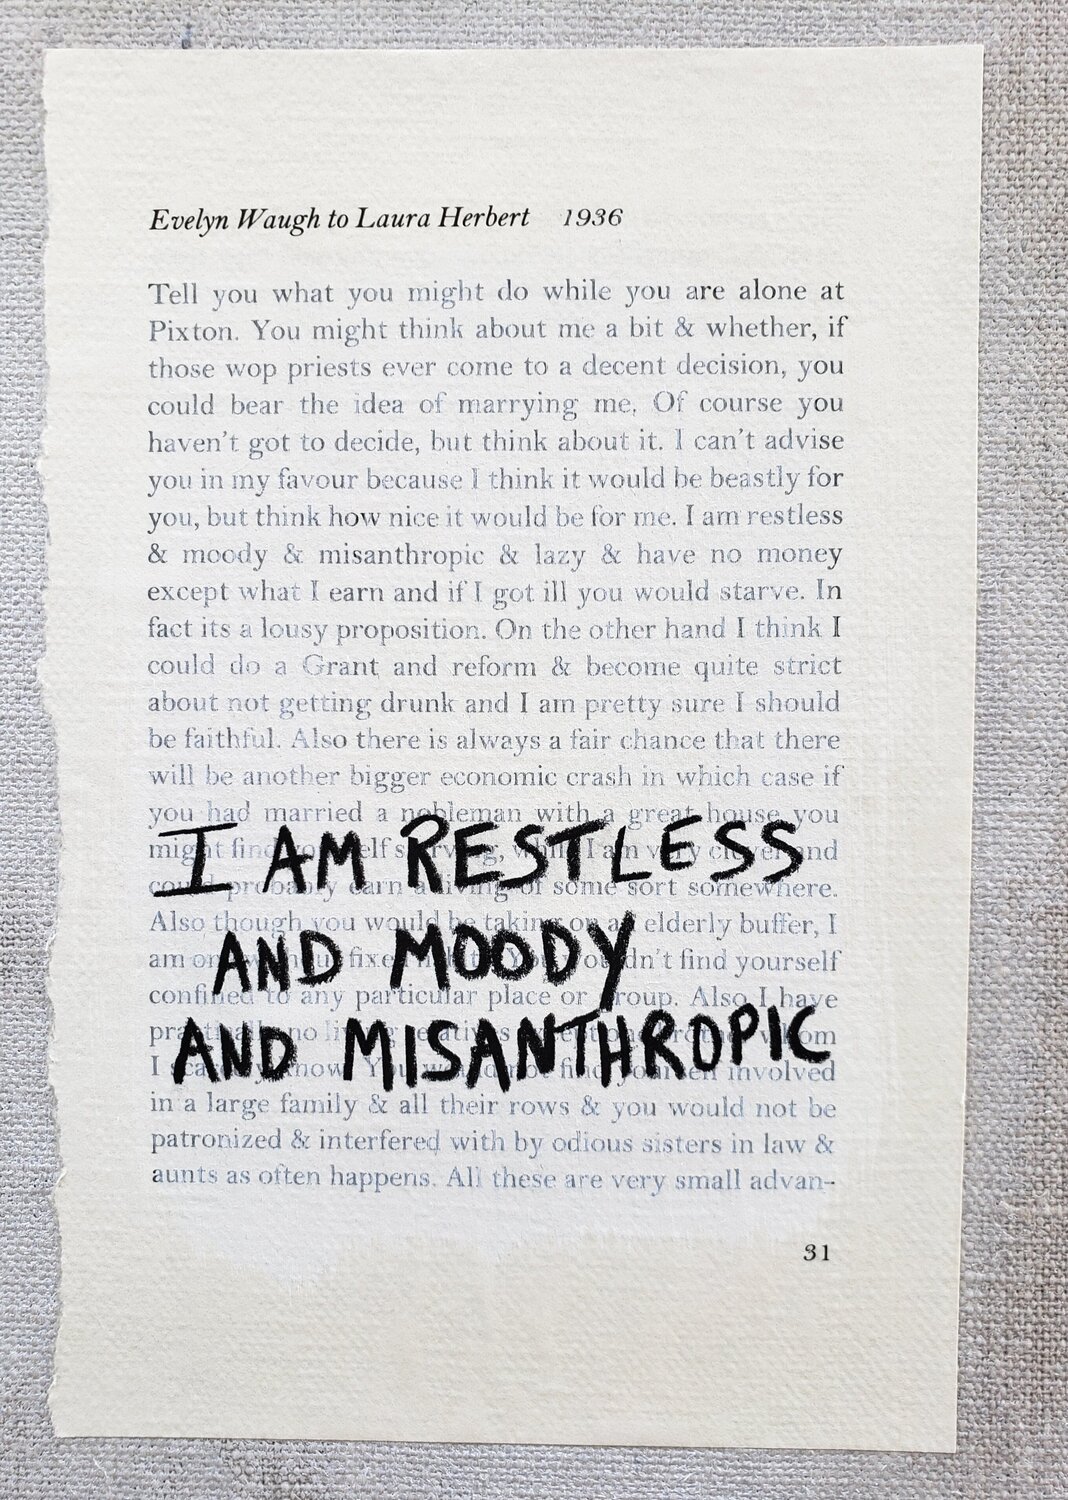 Evelyn Waugh to Laura Herbert 1936
Tell you what you might do while you are alone at
Pixton. You might think about me a bit & whether, if
those wop priests ever come to a decent decision, you
could bear the idea of marrying me. Of course you
haven't got to decide, but think about it. I can't advise
you in my favour because I think it would be beastly for
you, but think how nice it would be for me. I am restless
& moody & misanthropic & lazy & have no money
except what I earn and if I got ill you would starve. In
fact its a lousy proposition. On the other hand I think I
could do a Grant and reform & become quite strict
about not getting drunk and I am pretty sure I should
be faithful. Also there is always a fair chance that there
will be another bigger economic crash in which case if
you had married a nobleman with a great house you
might find yourself starving, while I am very clever and
could probably earn a living of some sort somewhere.
Also though you would be taking on an elderly buffer, I
am one without fixed habits. You wouldn't find yourself
confined to any particular place or group. Also I have
practically no living relatives except one brother whom
I scarcely know. You would not find yourself involved
in a large family & all their rows & you would not be
patronized & interfered with by odious sisters in law &
aunts as often happens. All these are very small advan-
I AM RESTLESS
AND MOODY
AND MISANTHROPIC
31